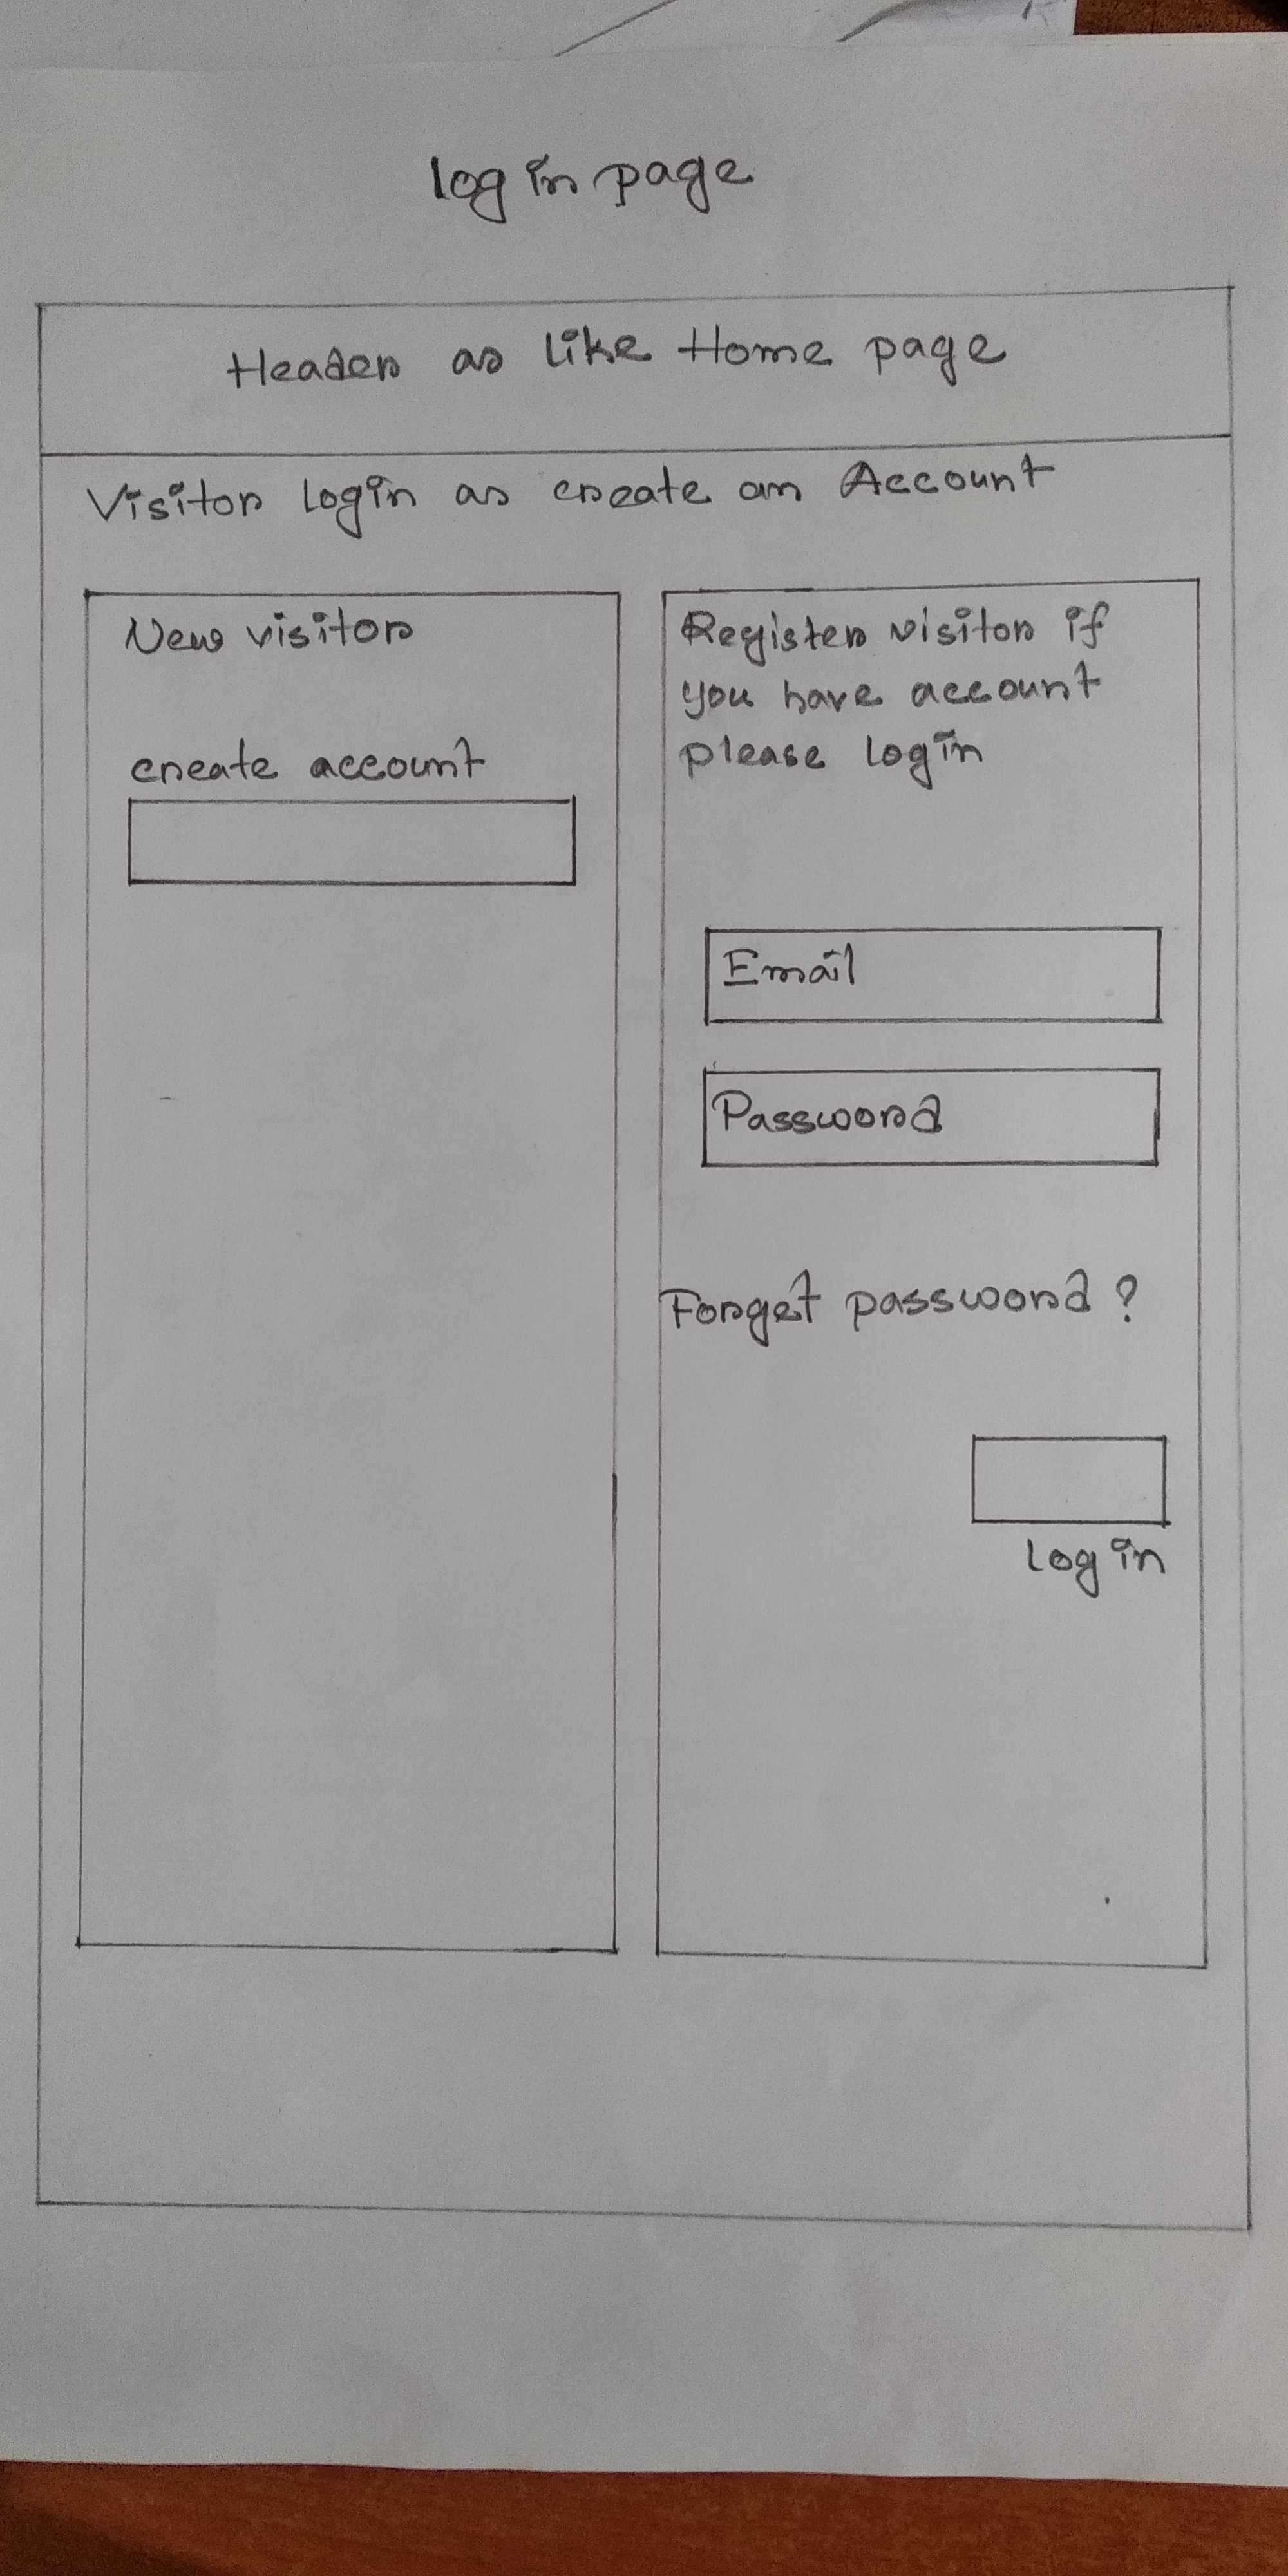 log in page
Header as like Home page
Visitor login as create an Account
New visitor
create account
Register visitor if
you have account
please login
Email
Password
Forget password ?
log in